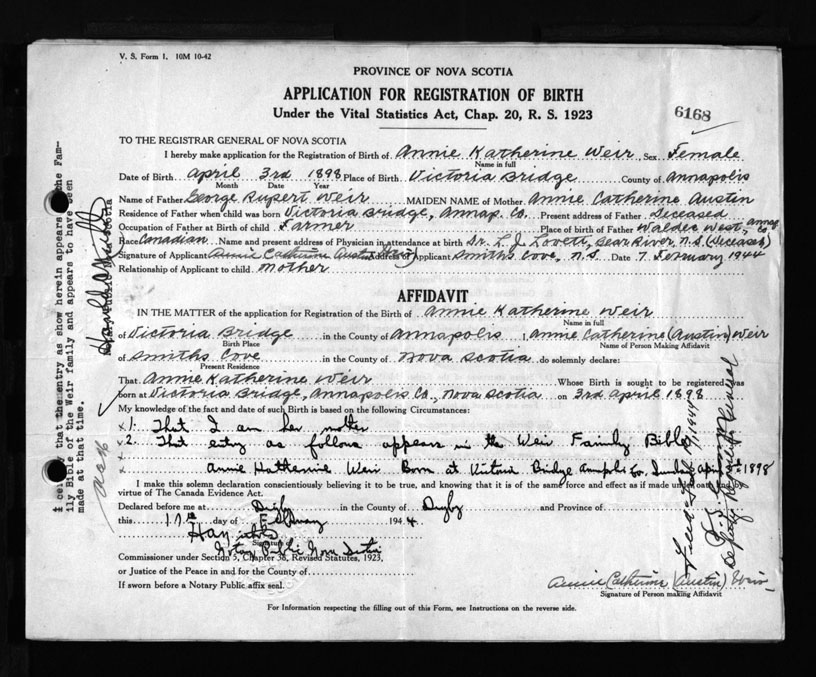 V. S. Form 1. 10M 10-42
PROVINCE OF NOVA SCOTIA
APPLICATION FOR REGISTRATION OF BIRTH
Under the Vital Statistics Act, Chap. 20, R. S. 1923
6168
TO THE REGISTRAR GENERAL OF NOVA SCOTIA
I hereby make application for the Registration of Birth of Annie Katherine Weir, Sex Female
Name in full
Date of Birth April 3rd 1898 Place of Birth Victoria Bridge County of Annapolis
Month Date Year
Name of Father George Rupert Weir MAIDEN NAME of Mother Annie Catherine Austin
Residence of Father when child was born Victoria Bridge, Annap. Co. Present address of Father Deceased
Occupation of Father at Birth of child Farmer Place of Birth of Father Waldec West, Annap Co.
Race Canadian Name and present address of Physician in attendance at birth Dr. L. J. Lovett, Bear River, N.S. (Deceased)
Signature of Applicant Annie Catherine Austin Weir Address of Applicant Smiths Cove, N.S. Date 7 February 1944
Relationship of Applicant to child Mother
AFFIDAVIT
IN THE MATTER of the application for Registration of the Birth of Annie Katherine Weir
Name in full
of Victoria Bridge in the County of Annapolis I, Annie Catherine (Austin) Weir
Birth Place Name of Person Making Affidavit
of Smiths Cove in the County of Nova Scotia do solemnly declare:
Present Residence
That Annie Katherine Weir Whose Birth is sought to be registered was
born at Victoria Bridge, Annapolis Co., Nova Scotia on 3rd April 1898
My knowledge of the fact and date of such Birth is based on the following Circumstances:
x 1. That I am her mother
x 2. That entry as follows appears in the Weir Family Bible
Annie Katherine Weir Born at Victoria Bridge Annapolis Co. Sunday April 3rd 1898
I make this solemn declaration conscientiously believing it to be true, and knowing that it is of the same force and effect as if made under oath and by
virtue of The Canada Evidence Act.
Declared before me at Digby in the County of Digby and Province of
this 17th day of February 1944
Signature
Notary Public Nova Scotia
Commissioner under Section 5, Chapter 38, Revised Statutes, 1923,
or Justice of the Peace in and for the County of
If sworn before a Notary Public affix seal.
Annie Catherine (Austin) Weir
Signature of Person making Affidavit
For Information respecting the filling out of this Form, see Instructions on the reverse side.
I certify that the entry as show herein appears in the Fam-
ily Bible of the Weir family and appears to have been
made at that time.
Nova Scotia
Deputy Registrar General